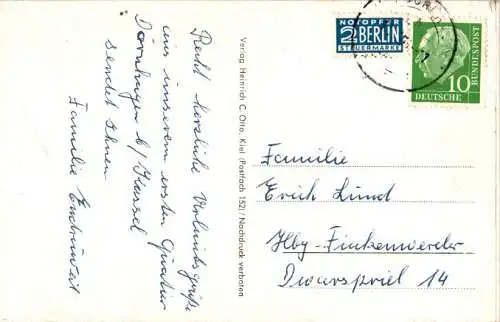 Recht herzliche Urlaubsgrüße
aus unserem ersten Quartier
b/ Kassel
sendet Ihnen
Familie
Verlag Heinrich C. Otto, Kiel (Postfach 152) / Nachdruck verboten
NOTOPFER
2 BERLIN
STEUERMARKE
10
DEUTSCHE
BUNDESPOST
Familie
Erich Lund
Hbg-Finkenwerder
Dwarspriel 14